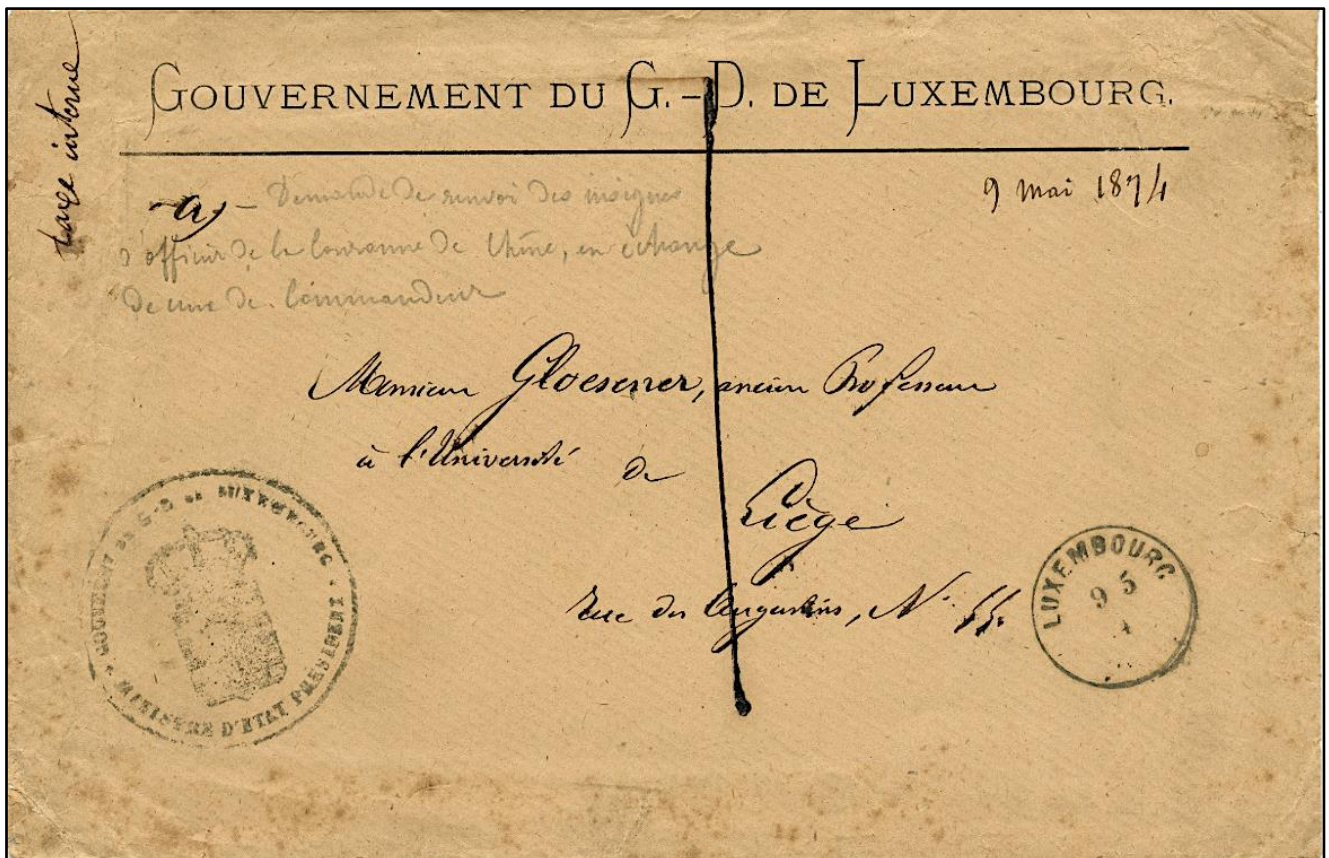 taxe interne
GOUVERNEMENT DU G.-D. DE LUXEMBOURG.
9 mai 1874
a) – Demande de renvoi des insignes
d'officier de la Couronne de Chêne, en échange
de ceux de Commandeur
Monsieur Gloesener, ancien Professeur
à l'Université de
Liège
rue des Augustins, N°
GOUVERNEMT DU G-D DE LUXEMBOURG
MINISTRE D'ETAT PRÉSIDENT
LUXEMBOURG
9 5